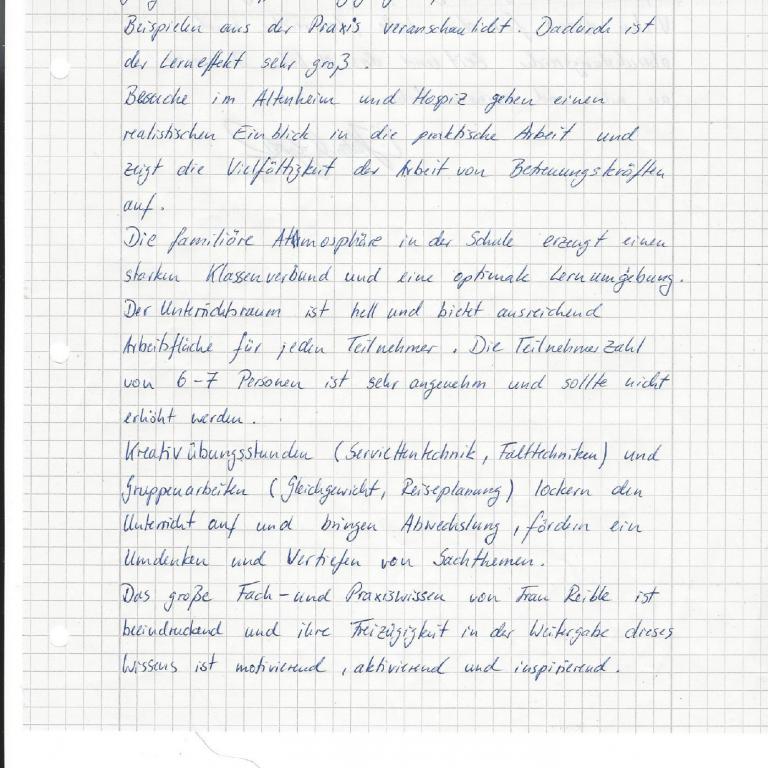 Beispielen aus der Praxis veranschaulicht. Dadurch ist
der Lerneffekt sehr groß.
Besuche im Altenheim und Hospiz geben einen
realistischen Einblick in die praktische Arbeit und
zeigt die Vielfältigkeit der Arbeit von Betreuungskräften
auf.
Die familiäre Atmosphäre in der Schule erzeugt einen
starken Klassenverbund und eine optimale Lernumgebung.
Der Unterrichtsraum ist hell und bietet ausreichend
Arbeitsfläche für jeden Teilnehmer. Die Teilnehmerzahl
von 6-7 Personen ist sehr angenehm und sollte nicht
erhöht werden.
Kreativübungsstunden (Serviettentechnik, Falttechniken) und
Gruppenarbeiten (Gleichgewicht, Reiseplanung) lockern den
Unterricht auf und bringen Abwechslung, fördern ein
Umdenken und Vertiefen von Sachthemen.
Das große Fach- und Praxiswissen von Frau Reible ist
beeindruckend und ihre Freizügigkeit in der Weitergabe dieses
Wissens ist motivierend, aktivierend und inspirierend.